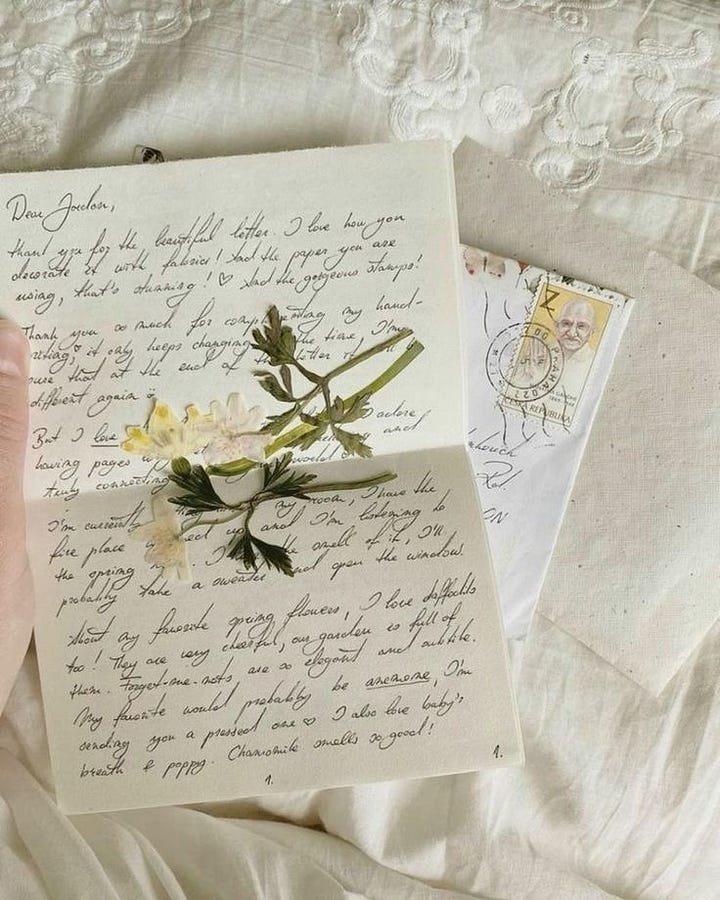 Dear Jordan,
thank you for the beautiful letter. I love how you
decorate it with fabrics! And the paper you are
using, that's stunning! ♡ And the gorgeous stamps!
Thank you so much for complimenting my hand-
writing, it only keeps changing the time, I'm
sure that at the end of letter it
different again
But I love adore
having pages world and
truly connecting
I'm currently my room, I have the
fire place and I'm listening to
the spring the smell of it, I'll
probably take a sweater and open the window.
About my favorite spring flowers, I love daffodils
too! They are very cheerful, our garden is full of
them. Forget-me-nots are so elegant and subtile.
My favorite would probably be anemone, I'm
sending you a pressed one ♡ I also love baby's
breath & poppy. Chamomile smells so good!
1.
1.
Z
PRAHA 022
ČESKÁ REPUBLIKA